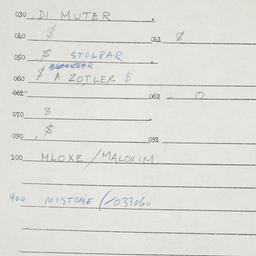 030 DI MUTER
040 $ 041 $
050 $ STOLBAR
060 $ A ZOTLER $
061 062 0
070 8
090 $ 091
100 MLOXE/MALOXIM
900 MISTOME /033060